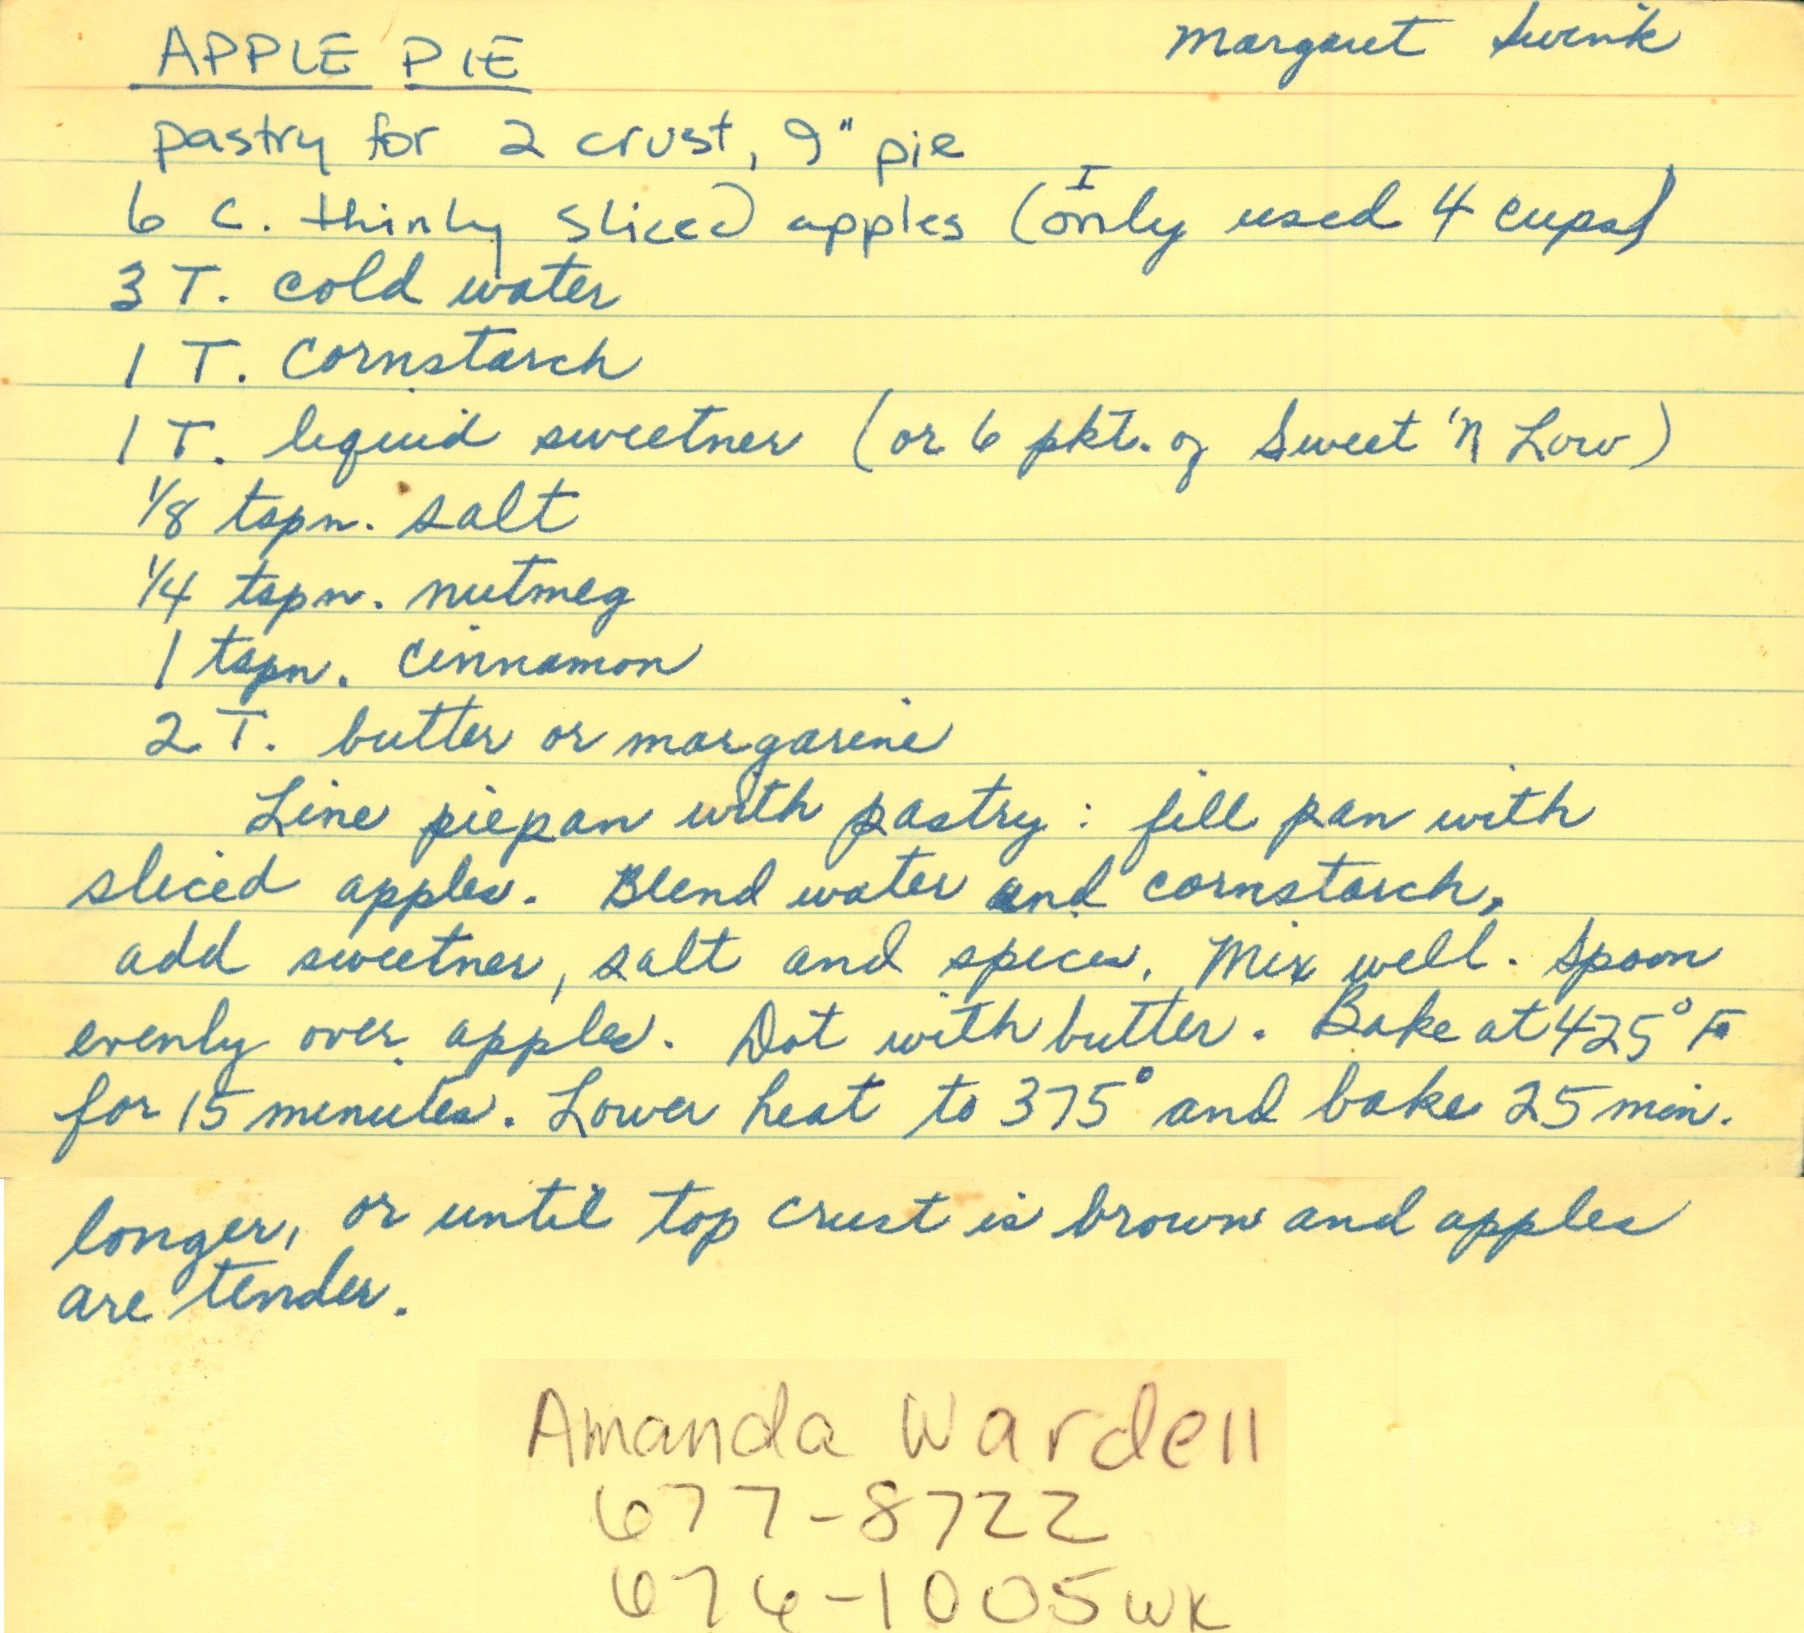 APPLE PIE Margaret Swink
pastry for 2 crust, 9" pie
6 C. thinly sliced apples (I only used 4 cups)
3 T. cold water
1 T. cornstarch
1 T. liquid sweetner (or 6 pkt. of Sweet 'n Low)
1/8 tspn. salt
1/4 tspn. nutmeg
1 tspn. cinnamon
2 T. butter or margarine
Line piepan with pastry: fill pan with
sliced apples. Blend water and cornstarch,
add sweetner, salt and spices. Mix well. Spoon
evenly over apples. Dot with butter. Bake at 425° F
for 15 minutes. Lower heat to 375° and bake 25 min.
longer, or until top crust is brown and apples
are tender.
Amanda Wardell
677-8722
676-1005 wk